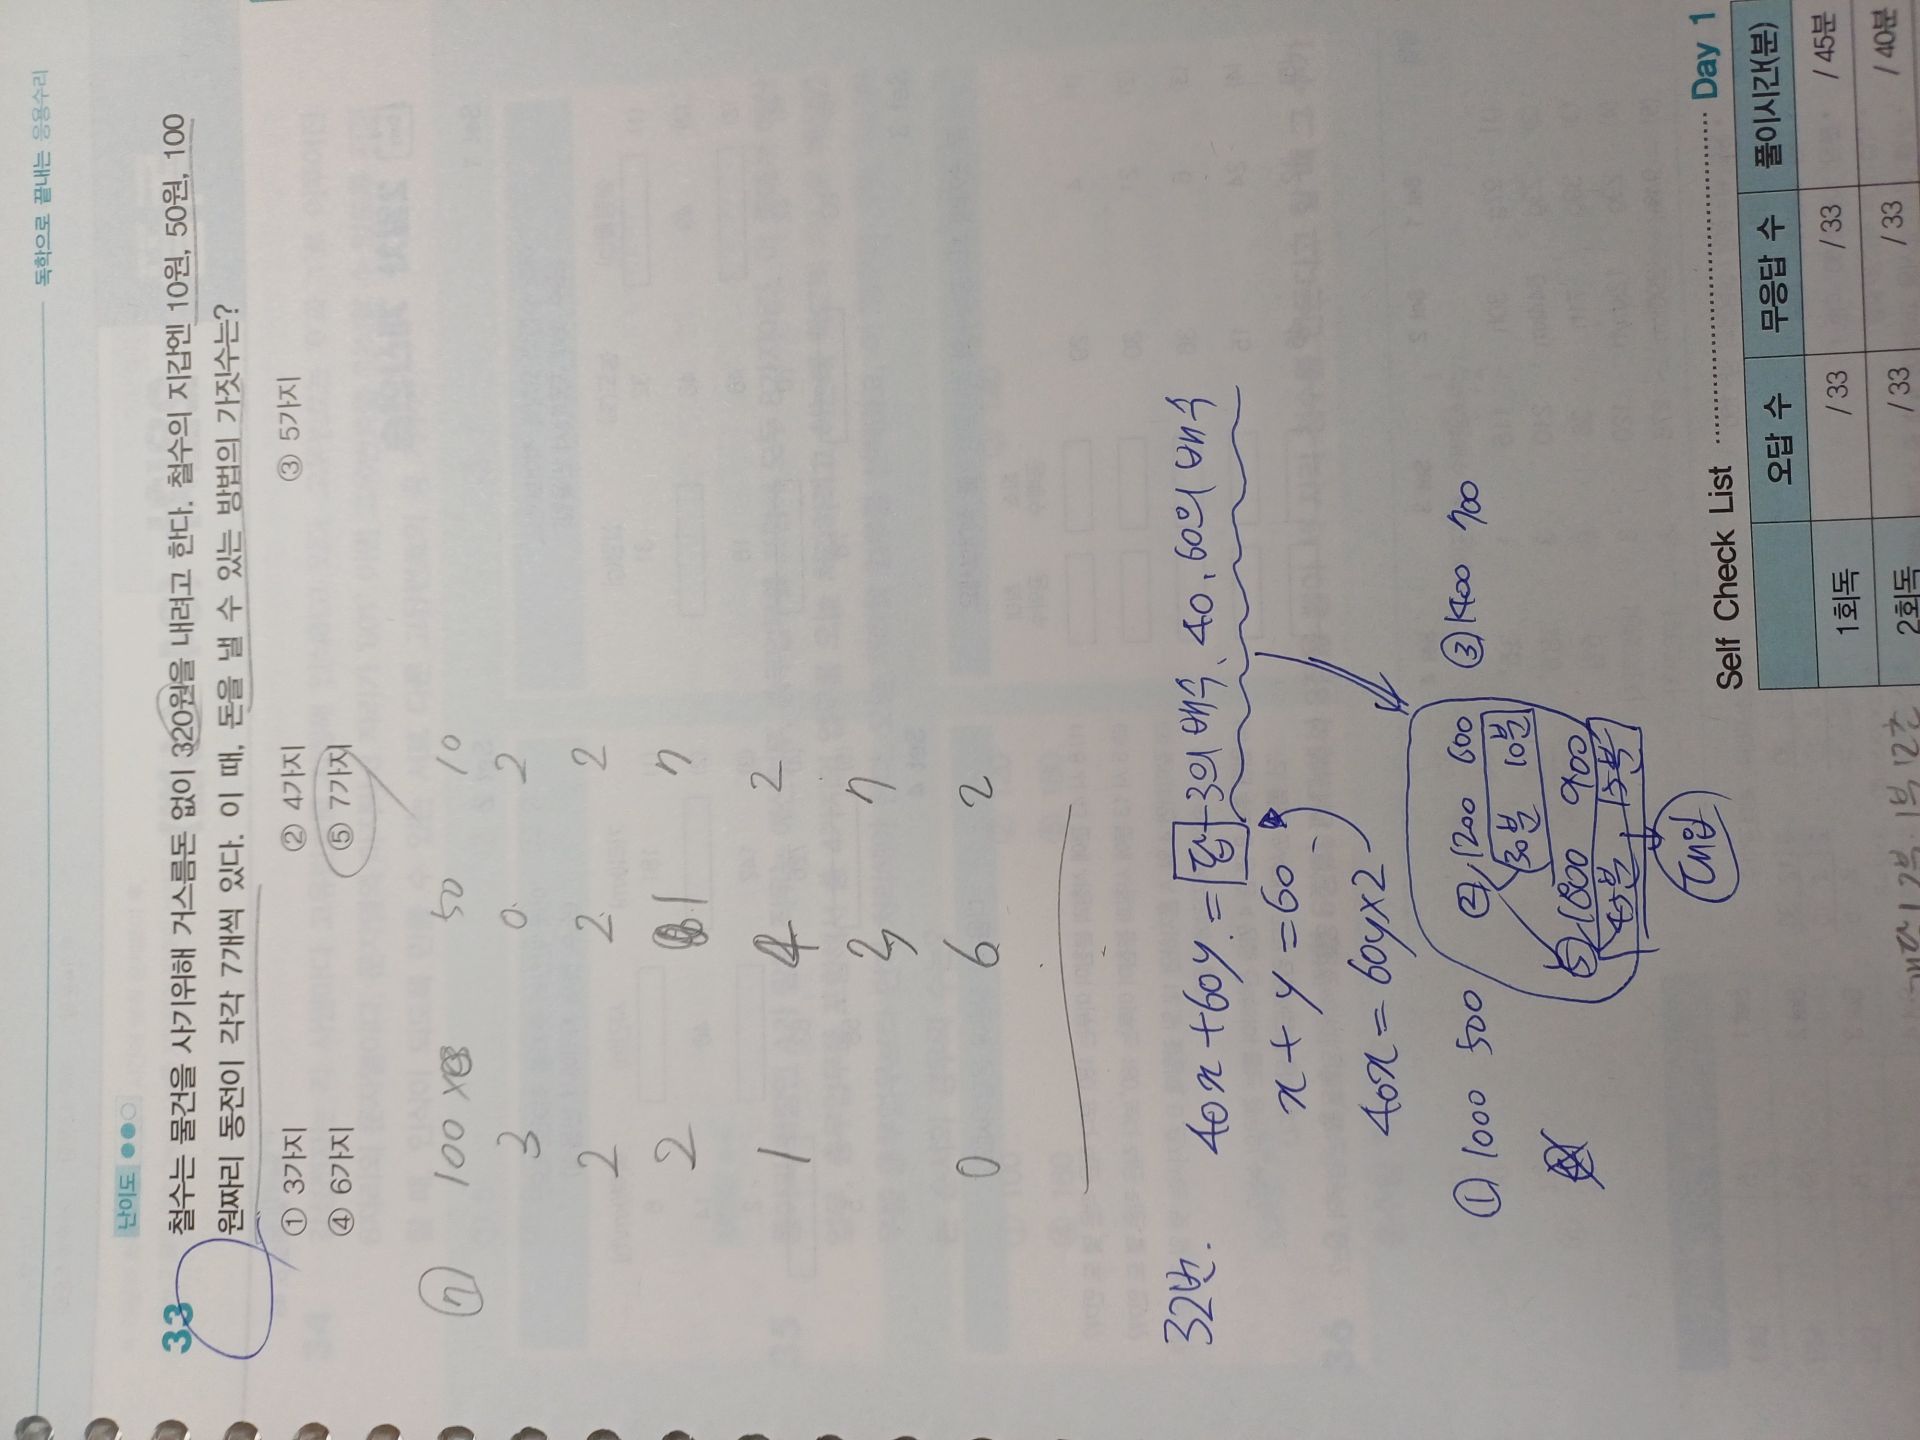 독학으로 끝내는 응용수리
난이도 ●●○
33 철수는 물건을 사기위해 거스름돈 없이 320원을 내려고 한다. 철수의 지갑엔 10원, 50원, 100
원짜리 동전이 각각 7개씩 있다. 이 때, 돈을 낼 수 있는 방법의 가짓수는?
① 3가지 ② 4가지 ③ 5가지
④ 6가지 ⑤ 7가지
7 100 50 10
3 0 2
2 2 2
2 1 7
1 4 2
3 7
0 6 2
32번. 40x + 60y = 답 → 3의 배수, 40, 60의 배수
x + y = 60
40x = 60y×2
① 1000 500 ② 1200 600 ③ 1400 700
30분 10분
⑤ 1800 900
45분 15분
대입
Self Check List Day 1
오답 수 무응답 수 풀이시간(분)
1회독 /33 /33 /45분
2회독 /33 /33 /40분